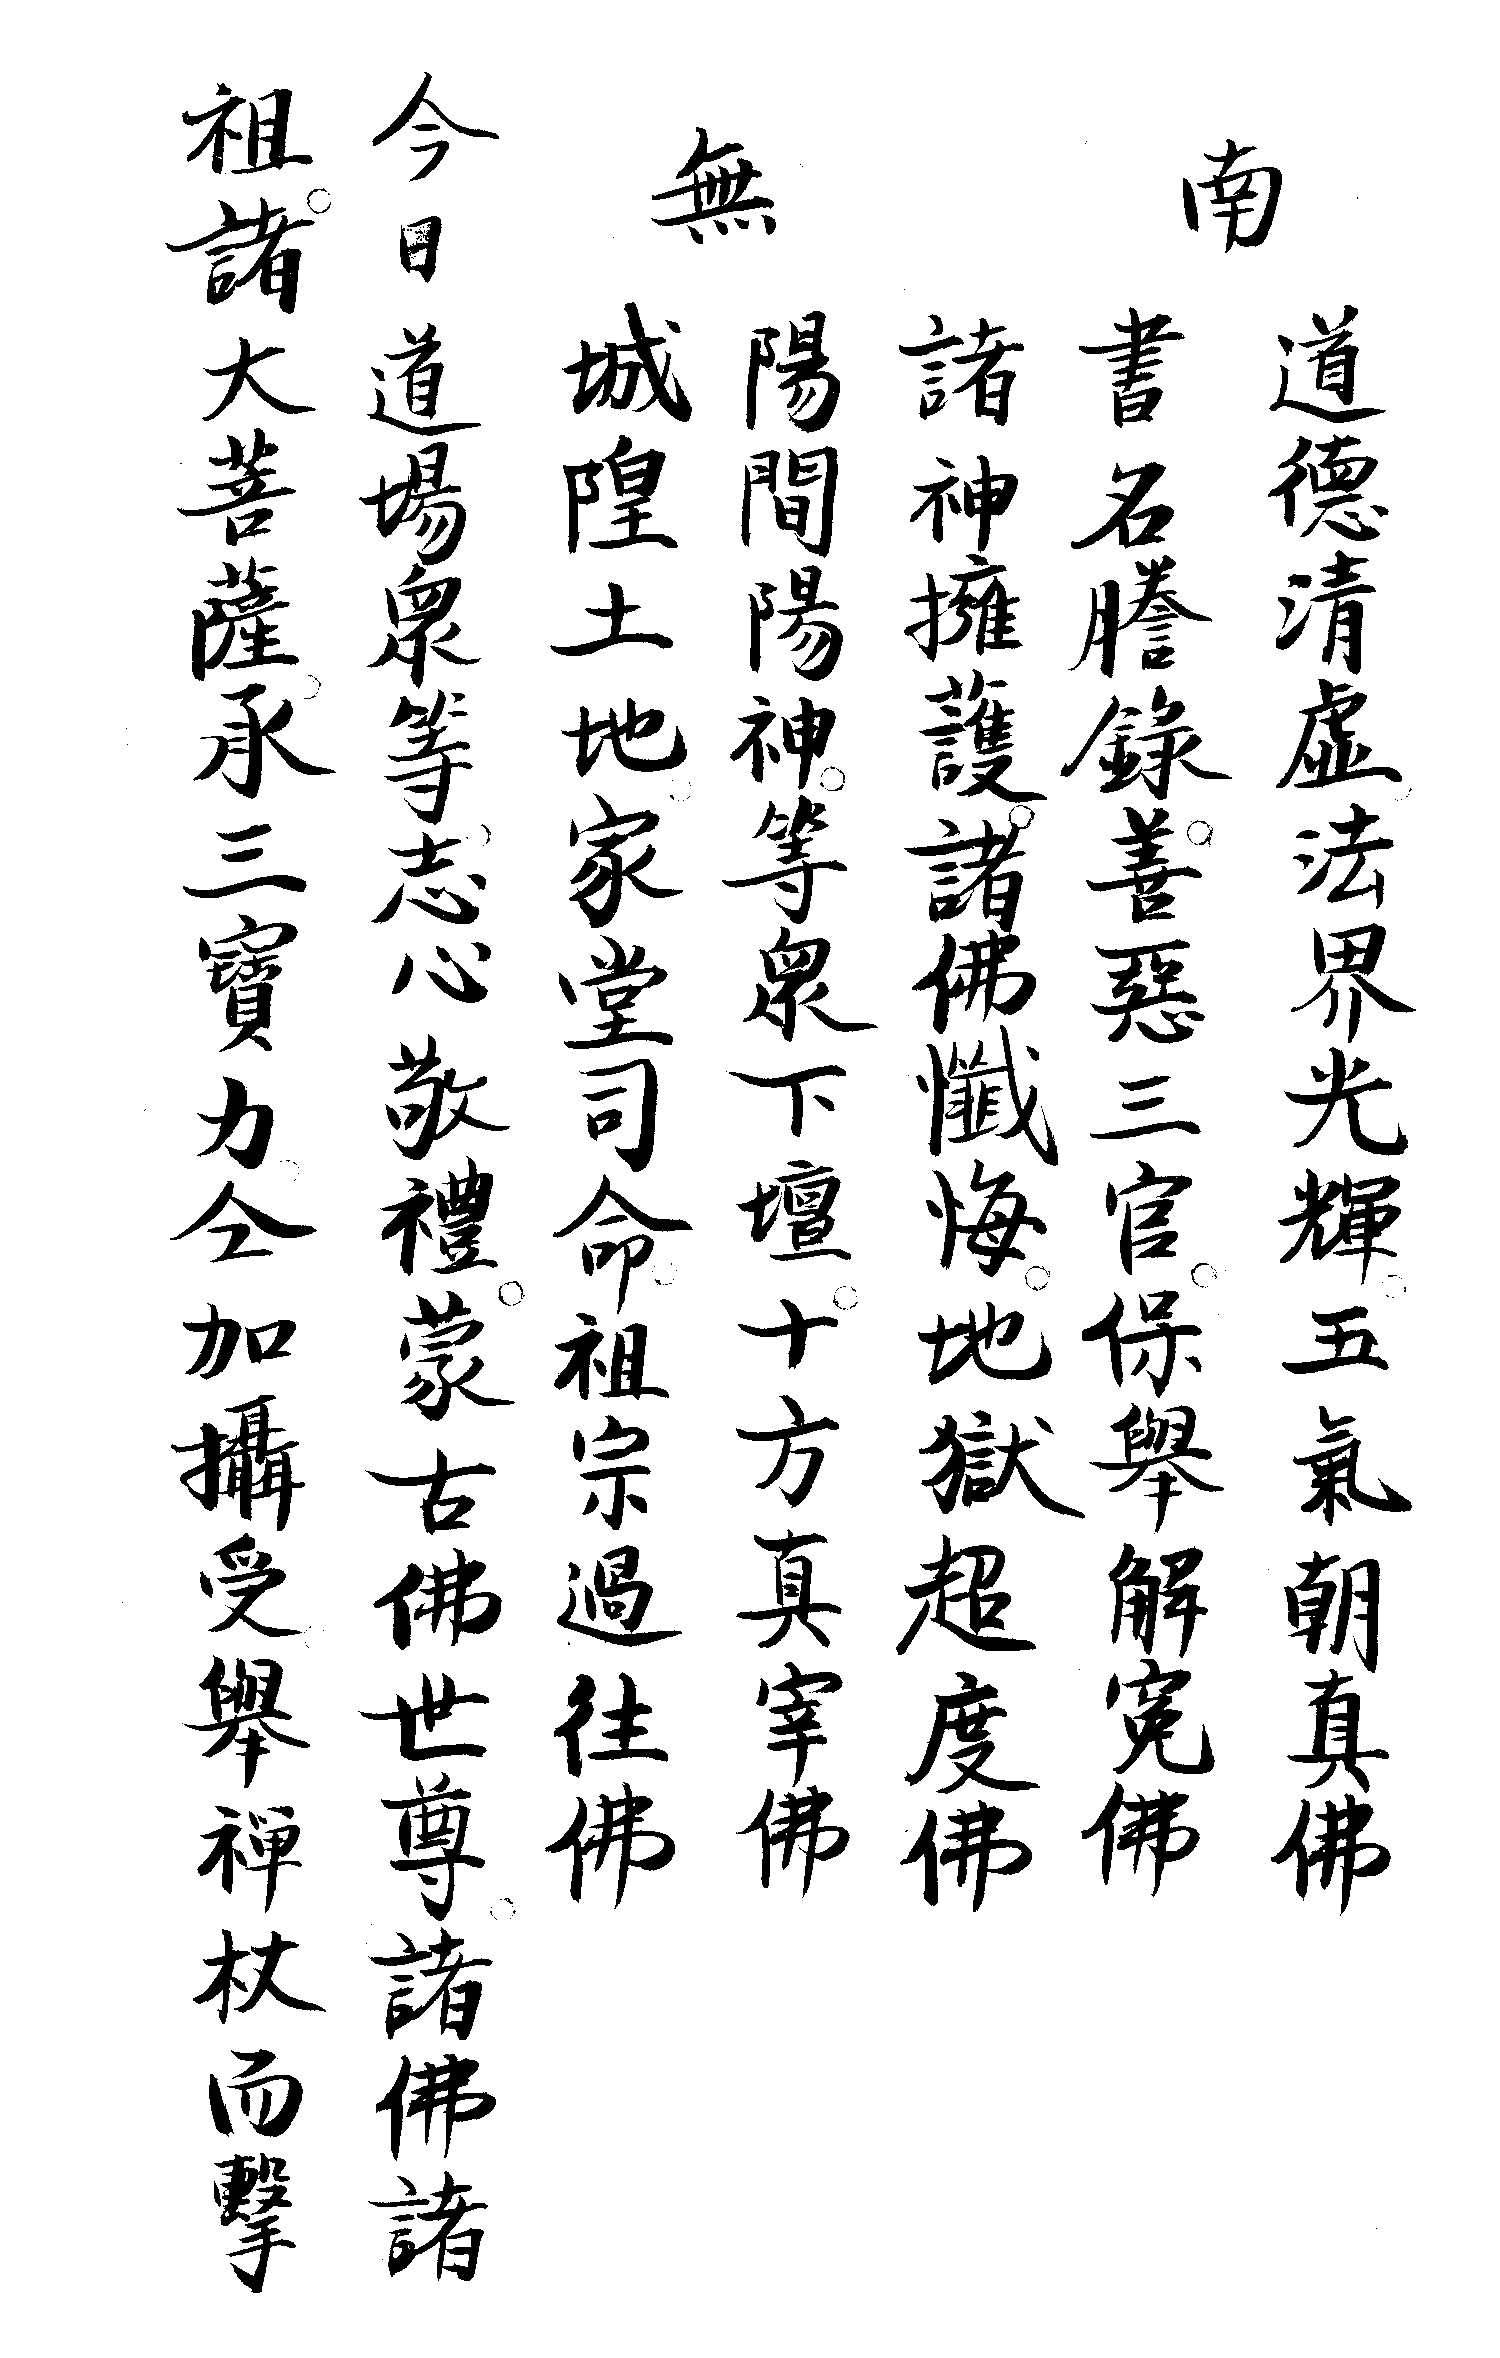 南
道德清虛。法界光輝。五氣朝真佛
書名謄錄。善惡三官。保舉解冤佛
諸神擁護。諸佛懺悔。地獄超度佛
無
陽間陽神。等衆下壇。十方真宰佛
城隍土地。家堂司命。祖宗過往佛
今日道場衆等。志心敬禮。蒙古佛世尊。諸佛諸
祖。諸大菩薩。承三寶力。仝加攝受。舉禪杖而擊